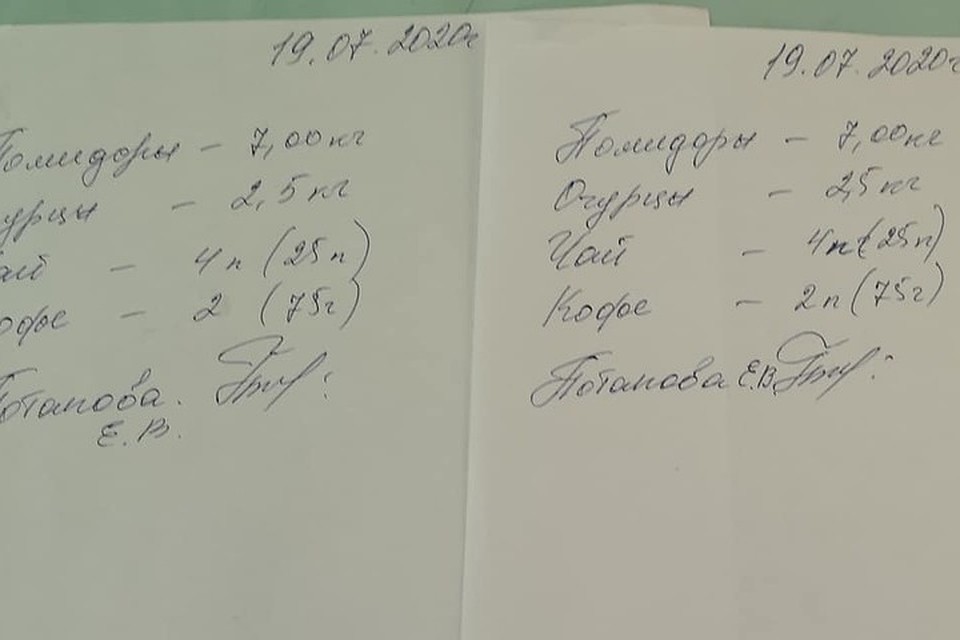 19.07.2020г
Помидоры – 7,00кг
гурцы – 2,5кг
ай – 4п (25п)
офе – 2 (75г)
Потапова.
Е.В.
19.07.2020г
Помидоры – 7,00кг
Огурцы – 2,5кг
Чай – 4п (25п)
Кофе – 2п (75г)
Потапова Е.В.